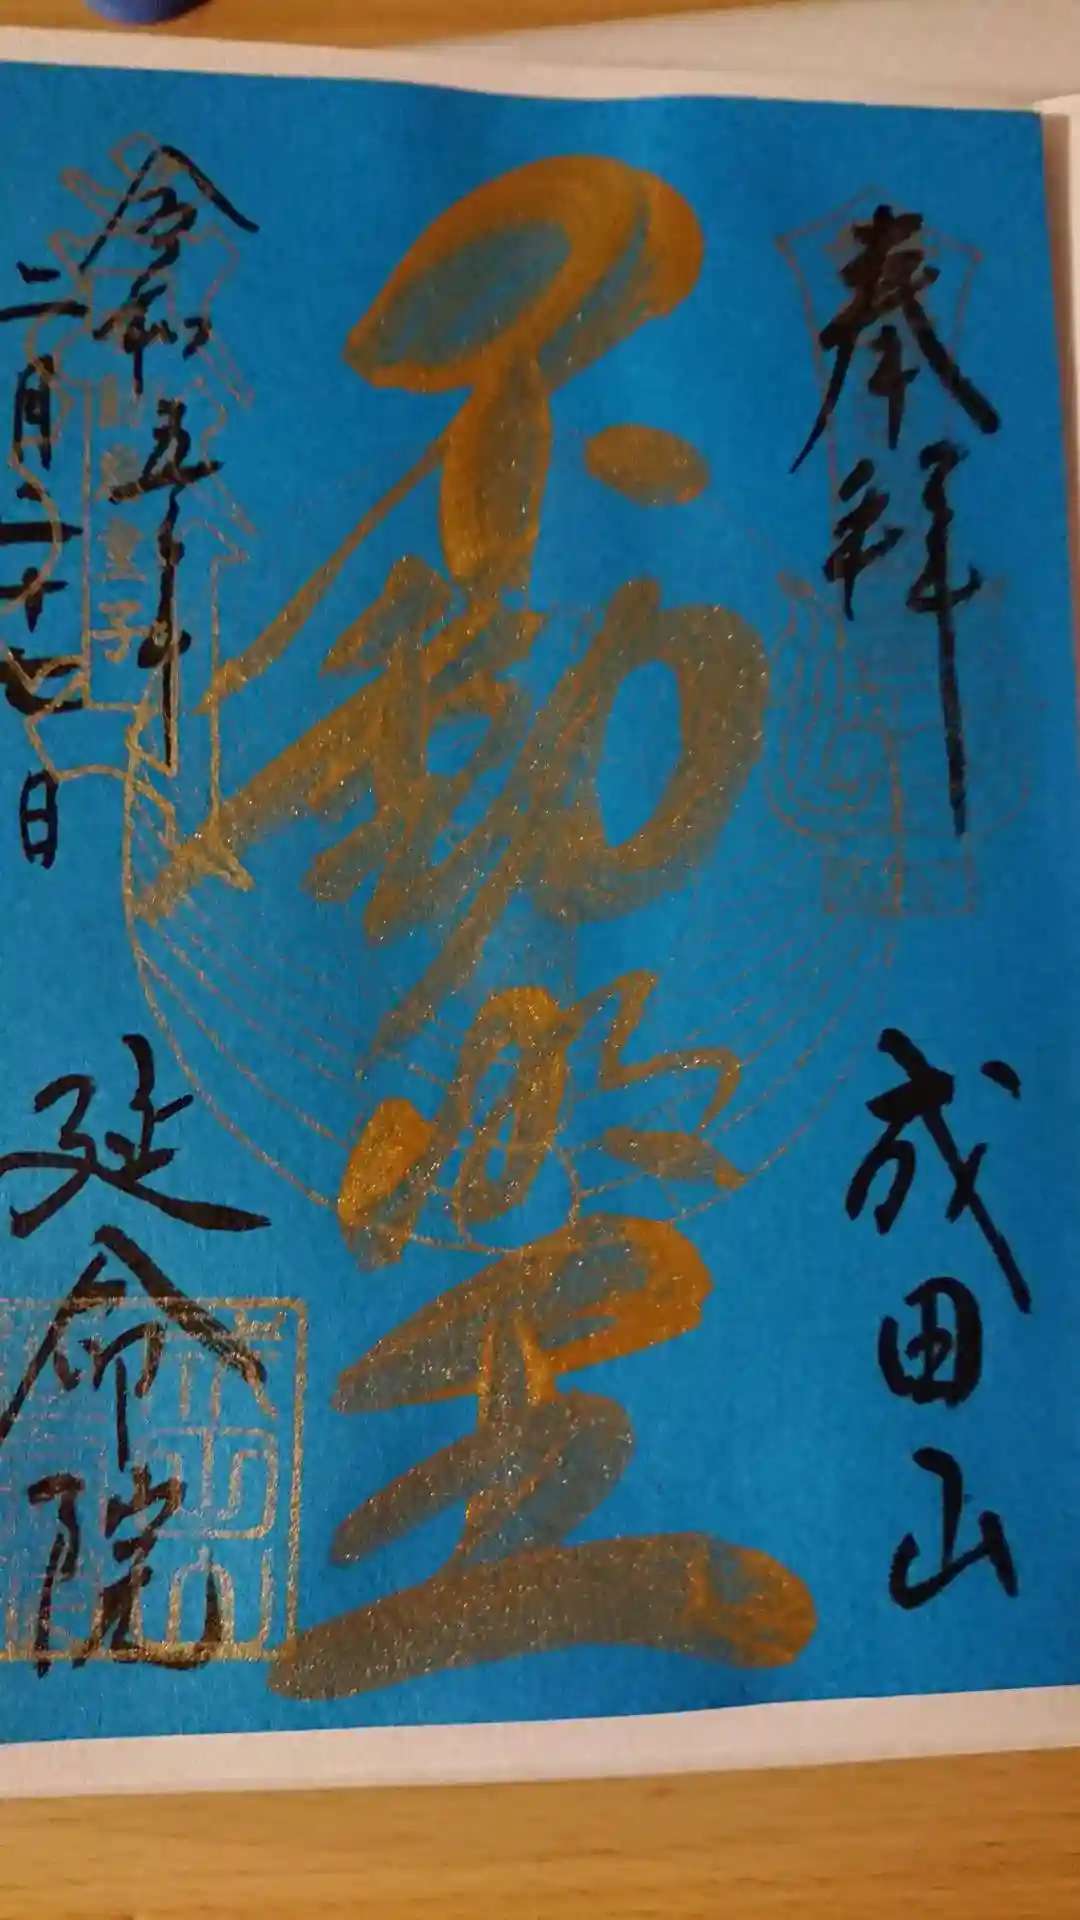 奉拝
成田山
不動明王
令和五年
二月二十七日
童子
延命院